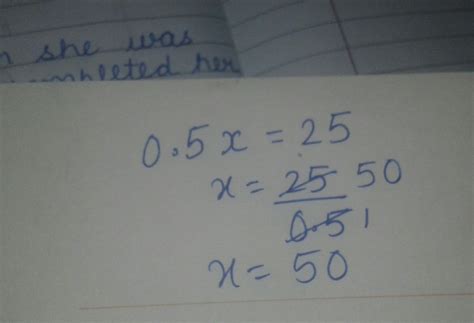 she was
completed her
0.5x = 25
x = 25 50
0.5 1
x = 50